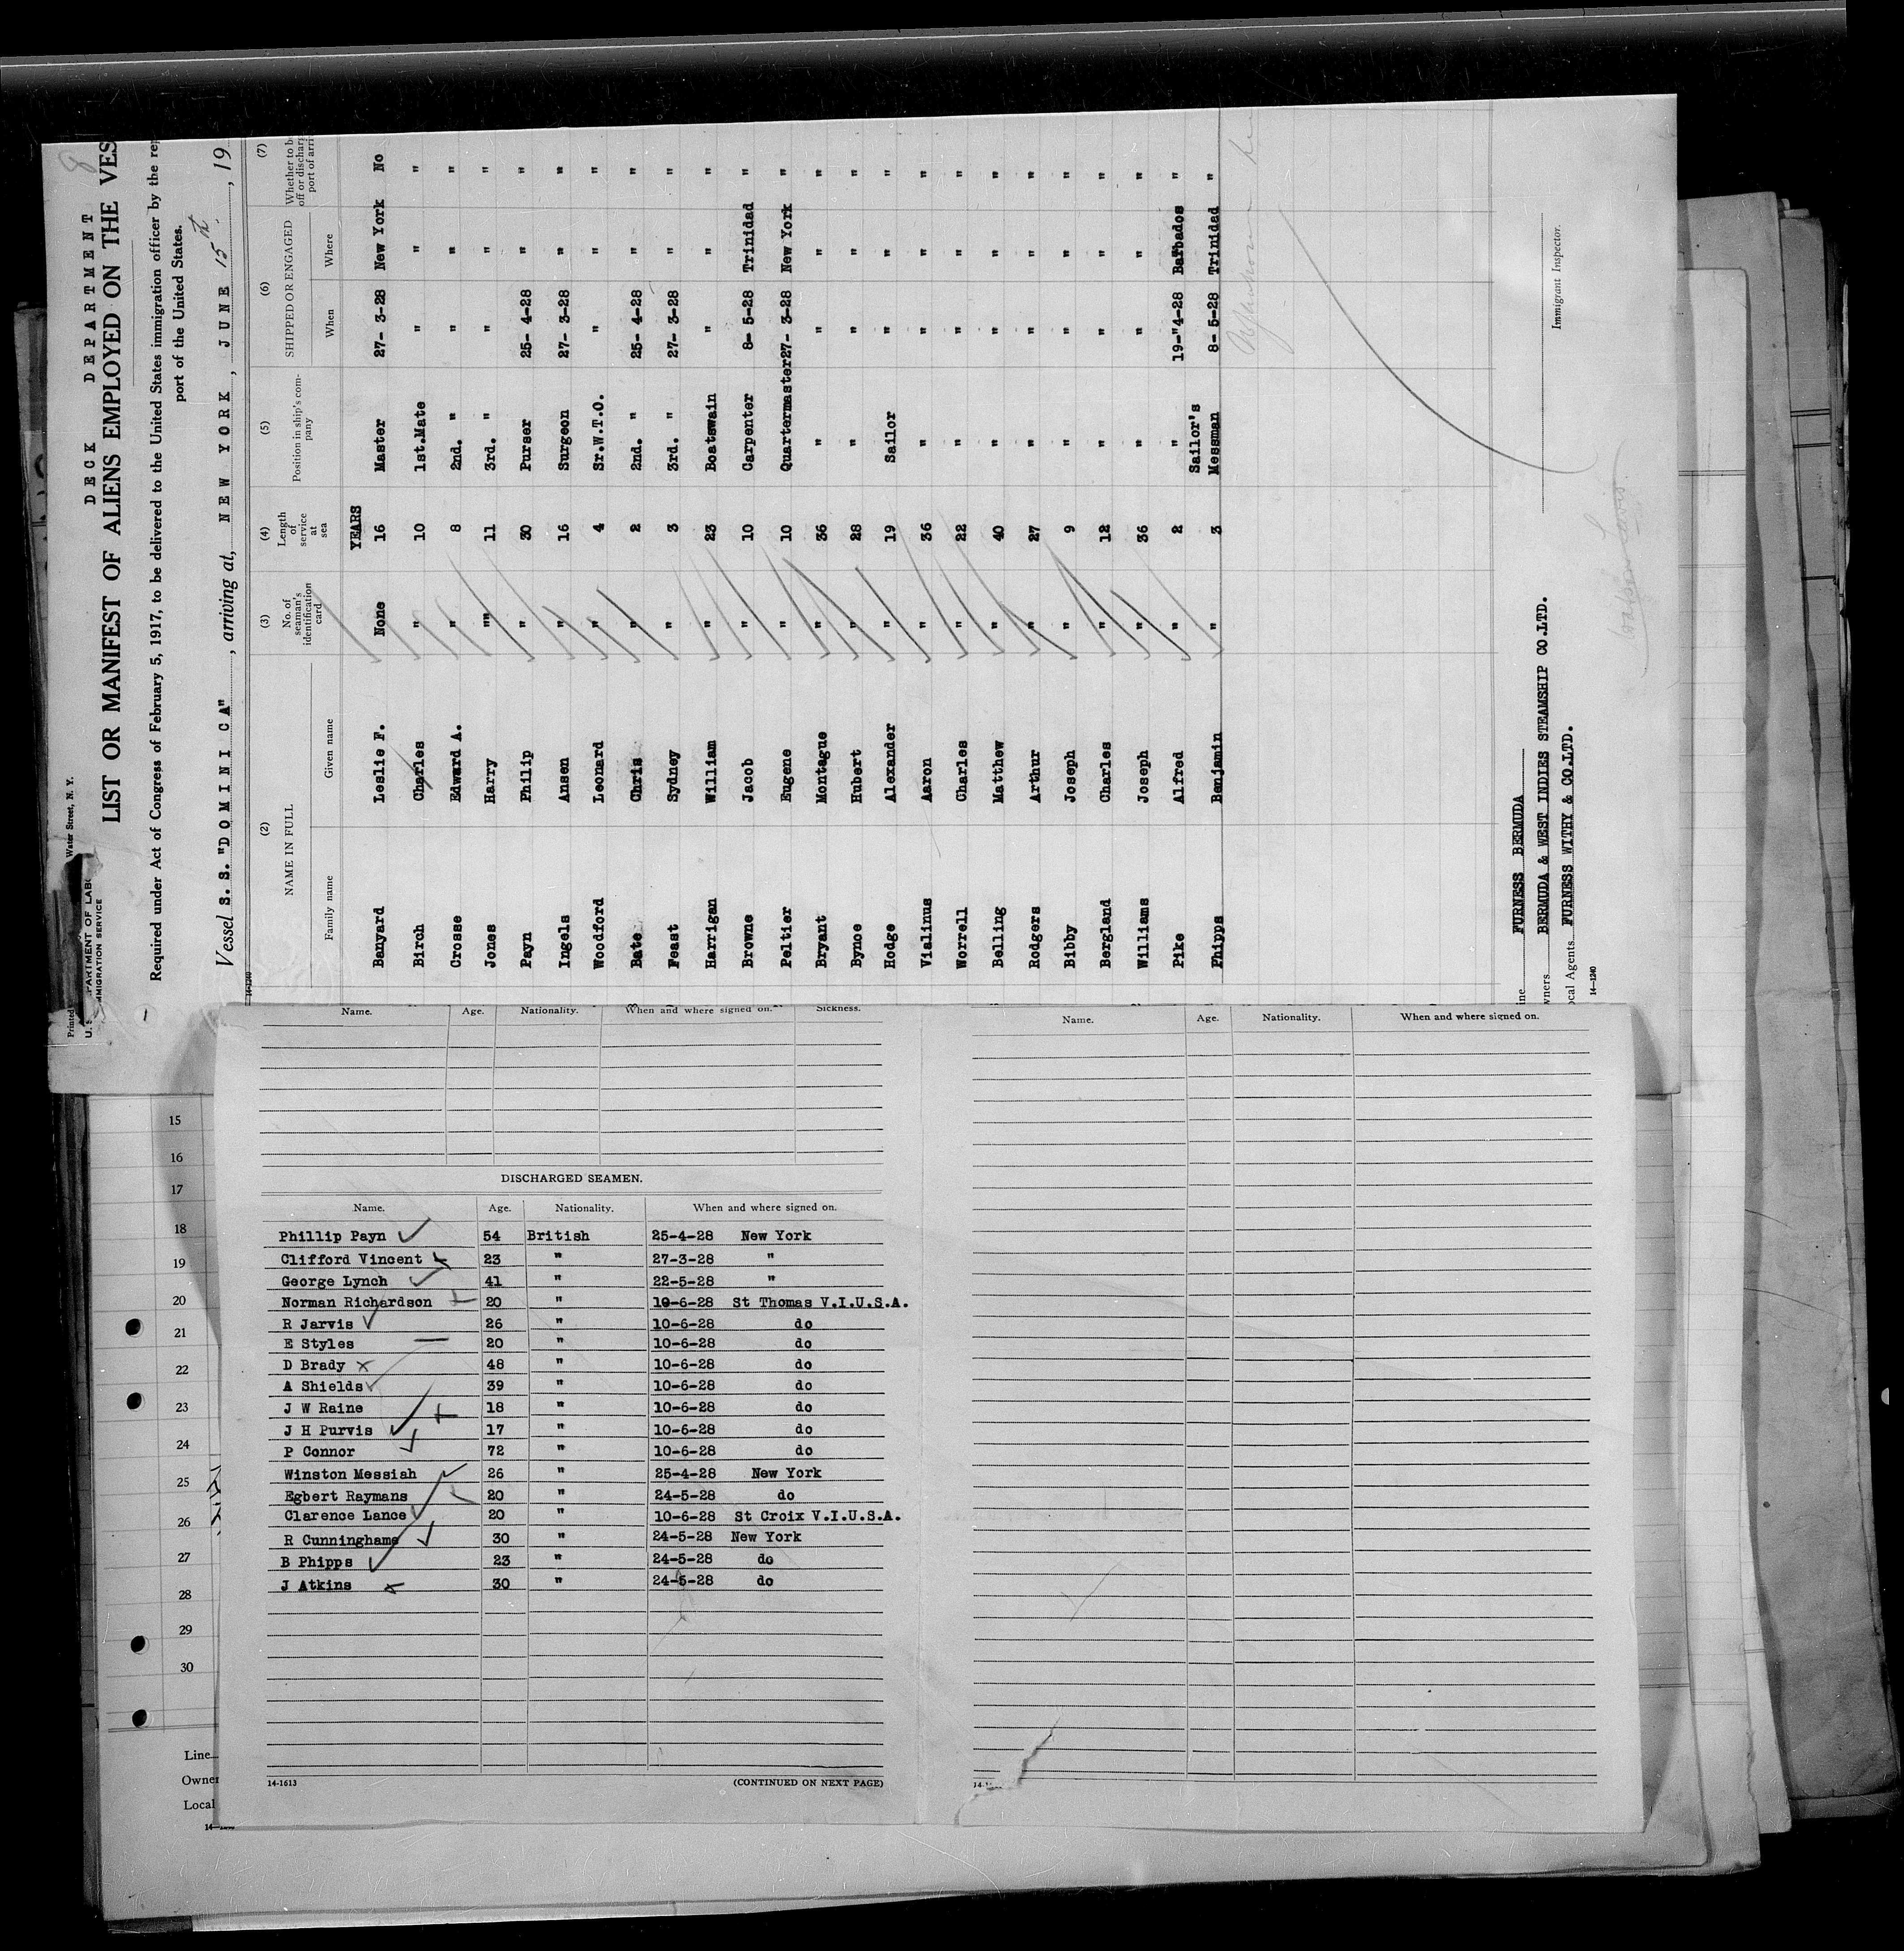 8
Printed Water Street, N. Y.
U. S. DEPARTMENT OF LABOR
IMMIGRATION SERVICE
DECK DEPARTMENT
LIST OR MANIFEST OF ALIENS EMPLOYED ON THE VES
Required under Act of Congress of February 5, 1917, to be delivered to the United States immigration officer by the rep
port of the United States.
Vessel S. S. "DOMINICA", arriving at, NEW YORK, JUNE 15th, 19
14-1240
(2) (3) (4) (5) (6) (7)
NAME IN FULL No. of seaman's identification card Length of service at sea Position in ship's company SHIPPED OR ENGAGED Whether to be off or discharg port of arri
Family name Given name When Where
YEARS
Banyard Leslie F. None 16 Master 27- 3-28 New York No
Birch Charles " 10 1st.Mate " " "
Crosse Edward A. " 8 2nd. " " " "
Jones Harry "" 11 3rd. " " " "
Payn Philip " 30 Purser 25- 4-28 " "
Ingels Ansen " 16 Surgeon 27- 3-28 " "
Woodford Leonard " 4 Sr.W.T.O. " " "
Bate Chris " 2 2nd. " 25- 4-28 " "
Feast Sydney " 3 3rd. " 27- 3-28 " "
Harrigan William " 23 Boatswain " " "
Browne Jacob " 10 Carpenter 8- 5-28 Trinidad "
Peltier Eugene " 10 Quartermaster 27- 3-28 New York "
Bryant Montague " 36 " " " "
Bynoe Hubert " 28 " " " "
Hodge Alexander " 19 Sailor " " "
Vialinus Aaron " 36 " " " "
Worrell Charles " 22 " " " "
Belling Matthew " 40 " " " "
Rodgers Arthur " 27 " " " "
Bibby Joseph " 9 " " " "
Bergland Charles " 12 " " " "
Williams Joseph " 36 " " " "
Pike Alfred " 2 " 19-"4-28 Barbados "
Phipps Benjamin " 3 Sailor's Messman 8- 5-28 Trinidad "
ine FURNESS BERMUDA
wners BERMUDA & WEST INDIES STEAMSHIP CO.LTD.
ocal Agents FURNESS WITHY & CO.LTD.
Immigrant Inspector.
14-1240
Name. Age. Nationality. When and where signed on. Sickness.
DISCHARGED SEAMEN.
Name. Age. Nationality. When and where signed on.
Phillip Payn 54 British 25-4-28 New York
Clifford Vincent 23 " 27-3-28 "
George Lynch 41 " 22-5-28 "
Norman Richardson 20 " 10-6-28 St Thomas V.I.U.S.A.
R Jarvis 26 " 10-6-28 do
E Styles 20 " 10-6-28 do
D Brady 48 " 10-6-28 do
A Shields 39 " 10-6-28 do
J W Raine 18 " 10-6-28 do
J H Purvis 17 " 10-6-28 do
P Connor 72 " 10-6-28 do
Winston Messiah 26 " 25-4-28 New York
Egbert Raymans 20 " 24-5-28 do
Clarence Lance 20 " 10-6-28 St Croix V.I.U.S.A.
R Cunninghams 30 " 24-5-28 New York
B Phipps 23 " 24-5-28 do
J Atkins 30 " 24-5-28 do
14-1613 (CONTINUED ON NEXT PAGE)
Name. Age. Nationality. When and where signed on.
15
16
17
18
19
20
21
22
23
24
25
26
27
28
29
30
Line
Owner
Local